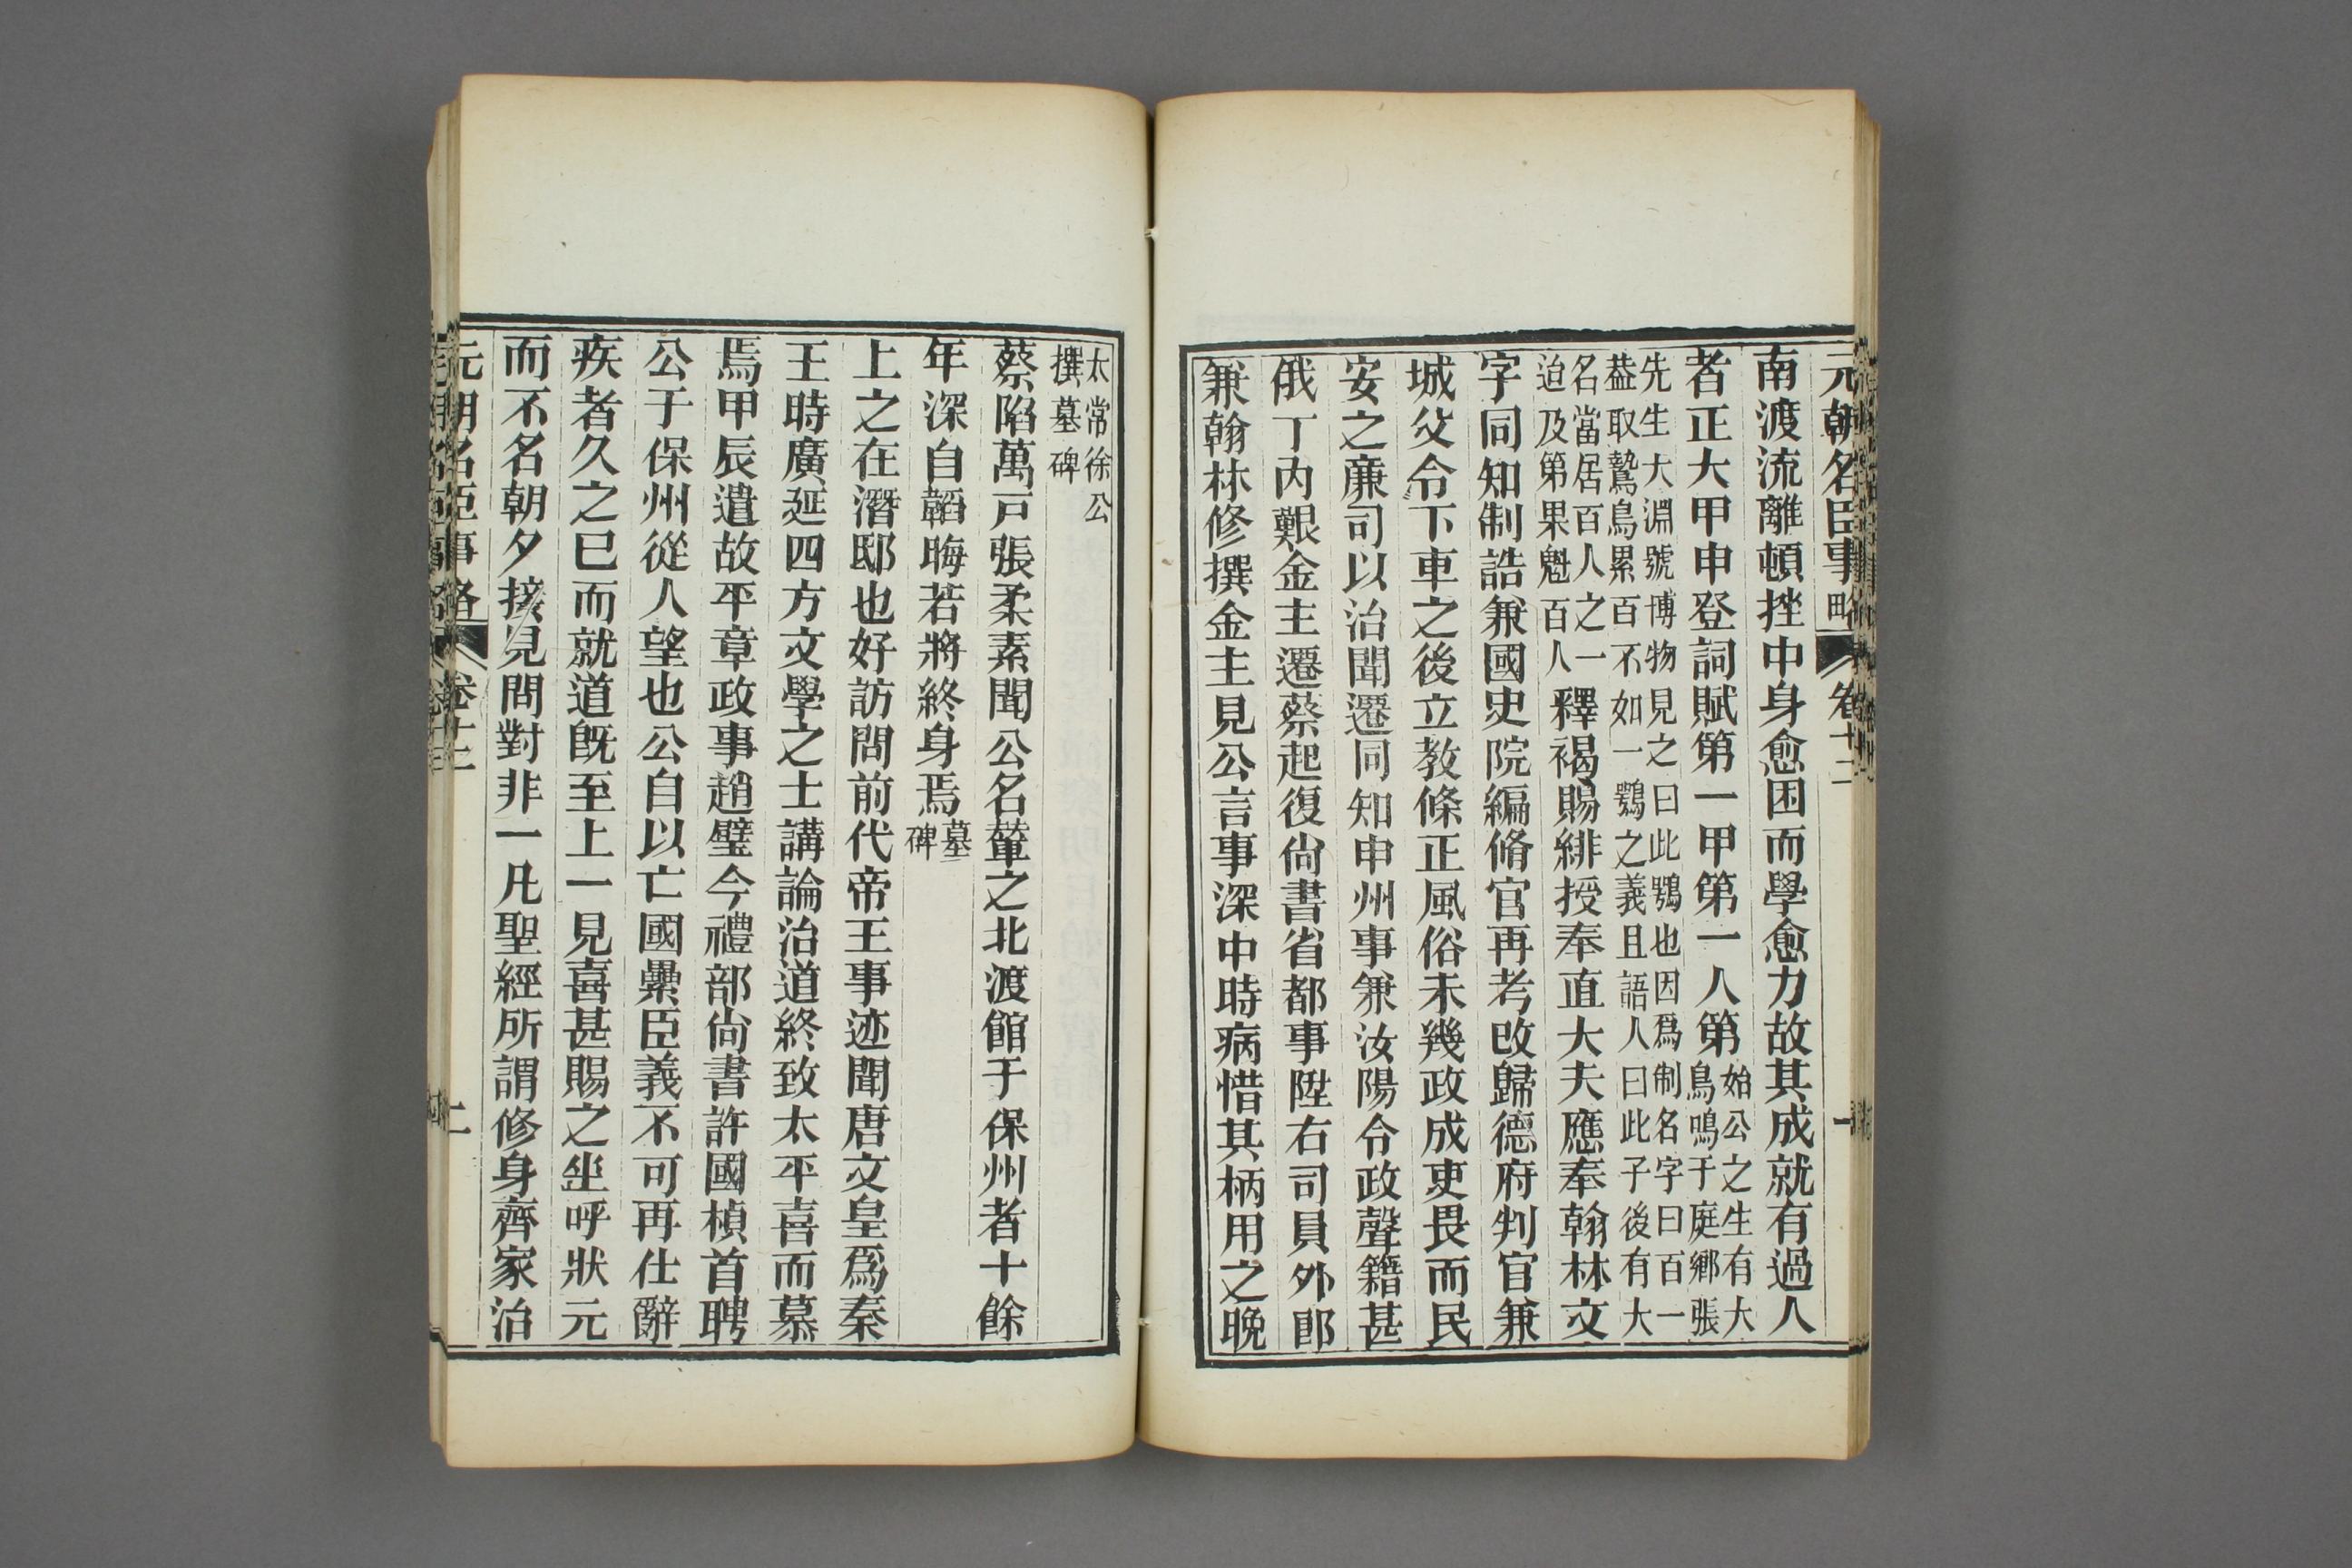 元朝名臣事略 卷十二 一
南渡流離頓挫中身愈困而學愈力故其成就有過人
者正大甲申登詞賦第一甲第一人第
始公之生有大
鳥鳴于庭鄉張
先生大淵號博物見之曰此鶚也因爲制名字曰百一
葢取鷙鳥累百不如一鶚之義且語人曰此子後有大
名當居百人之一
迨及第果魁百人
釋褐賜緋授奉直大夫應奉翰林文
字同知制誥兼國史院編脩官再考改歸德府判官兼
城父令下車之後立教條正風俗未幾政成吏畏而民
安之廉司以治聞遷同知申州事兼汝陽令政聲籍甚
俄丁內艱金主遷蔡起復尙書省都事陞右司員外郎
兼翰林修撰金主見公言事深中時病惜其柄用之晚
太常徐公
撰墓碑
蔡陷萬戸張柔素聞公名輦之北渡館于保州者十餘
年深自韜晦若將終身焉
墓
碑
上之在潛邸也好訪問前代帝王事迹聞唐文皇爲秦
王時廣延四方文學之士講論治道終致太平喜而慕
焉甲辰遣故平章政事趙璧今禮部尙書許國楨首聘
公于保州從人望也公自以亡國纍臣義不可再仕辭
疾者久之已而就道旣至上一見喜甚賜之坐呼狀元
而不名朝夕接見問對非一凡聖經所謂修身齊家治
元朝名臣事略 卷十二 二